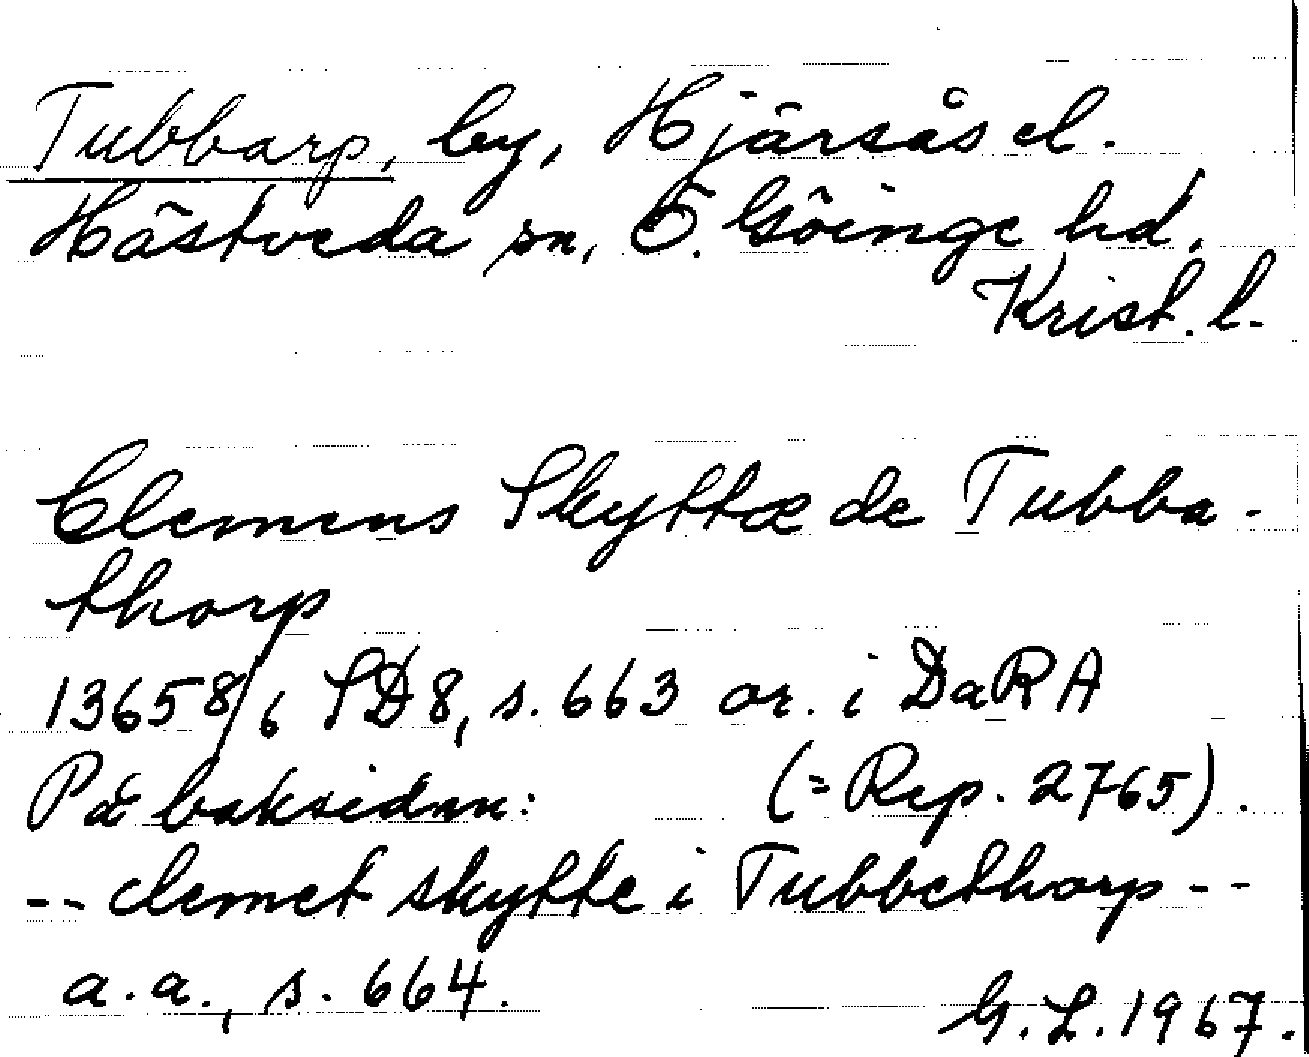 Tubbarp, by, Hjärsås el.
Hästveda sn, Ö. Göinge hd.
Krist. l.
Clemens Skyttæ de Tubba-
thorp
13658/6 SD8, s. 663 or. i DaRA
På baksidan: (= Rep. 2765).
-- clemet skytte i Tubbethorp --
a.a., s. 664.
G.L. 1967.